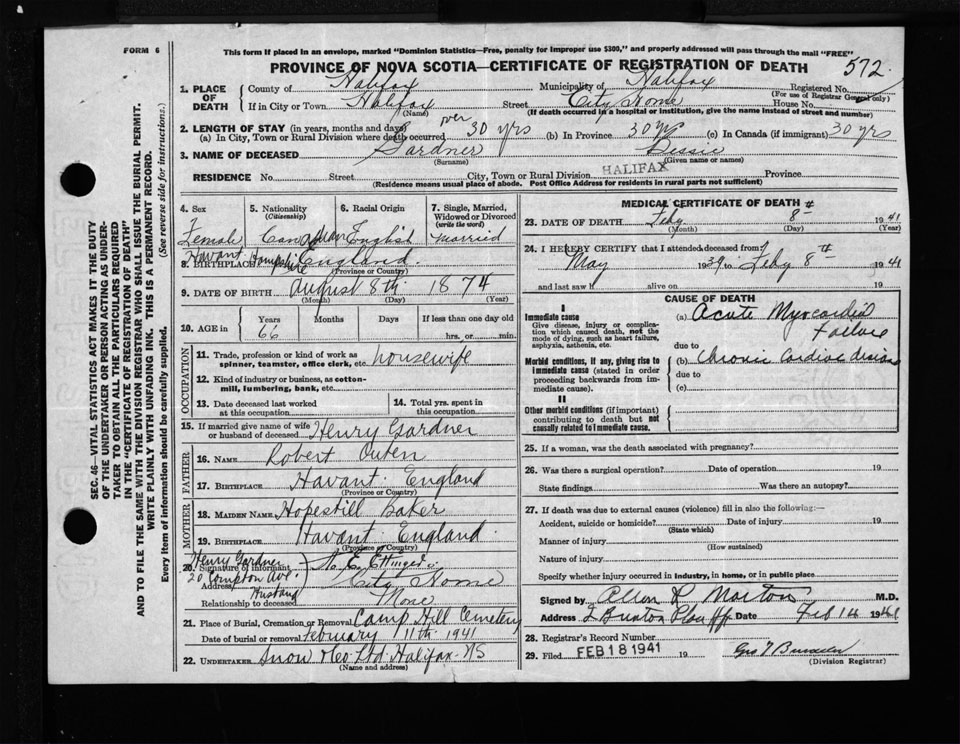 FORM 6
This form if placed in an envelope, marked "Dominion Statistics—Free, penalty for improper use $300," and properly addressed will pass through the mail "FREE"
PROVINCE OF NOVA SCOTIA—CERTIFICATE OF REGISTRATION OF DEATH 572
1. PLACE OF DEATH County of Halifax Municipality of Halifax Registered No.
(For use of Registrar General only)
If in City or Town Halifax Street City Home House No.
(Name) (If death occurred in a hospital or institution, give the name instead of street and number)
2. LENGTH OF STAY (in years, months and days)
(a) In City, Town or Rural Division where death occurred over 30 yrs (b) In Province 30 yrs (c) In Canada (if immigrant) 30 yrs
3. NAME OF DECEASED Gardner Bessie
(Surname) (Given name or names)
RESIDENCE No. Street City, Town or Rural Division HALIFAX Province
(Residence means usual place of abode. Post Office Address for residents in rural parts not sufficient)
4. Sex 5. Nationality (Citizenship) 6. Racial Origin 7. Single, Married, Widowed or Divorced (write the word)
Female Canadian English Married
8. BIRTHPLACE Havant Hampshire England
(Province or Country)
9. DATE OF BIRTH August 8th 1874
(Month) (Day) (Year)
10. AGE in Years Months Days If less than one day old
66 hrs. or min.
OCCUPATION
11. Trade, profession or kind of work as spinner, teamster, office clerk, etc. housewife
12. Kind of industry or business, as cotton-mill, lumbering, bank, etc.
13. Date deceased last worked at this occupation
14. Total yrs. spent in this occupation
15. If married give name of wife or husband of deceased Henry Gardner
FATHER
16. NAME Robert Outen
17. BIRTHPLACE Havant England
(Province or Country)
MOTHER
18. MAIDEN NAME Hopestill Baker
19. BIRTHPLACE Havant England
(Province or Country)
20. Signature of informant Henry Gardner A. E. Ettinger
Address 20 Compton Ave. City Home
Relationship to deceased Husband None
21. Place of Burial, Cremation or Removal Camp Hill Cemetery
Date of burial or removal February 11th 1941
22. UNDERTAKER Snow & Co Ltd Halifax NS
(Name and address)
MEDICAL CERTIFICATE OF DEATH
23. DATE OF DEATH Feby 8th 1941
(Month) (Day) (Year)
24. I HEREBY CERTIFY that I attended deceased from
May 1939 to Feby 8th 1941
and last saw h alive on 19
CAUSE OF DEATH
I
Immediate cause (a) Acute Myocardial Failure
Give disease, injury or complication which caused death, not the mode of dying, such as heart failure, asphyxia, asthenia, etc.
due to
Morbid conditions, if any, giving rise to immediate cause (stated in order proceeding backwards from immediate cause).
(b) Chronic Cardiac disease
due to
(c)
II
Other morbid conditions (if important) contributing to death but not causally related to immediate cause.
25. If a woman, was the death associated with pregnancy?
26. Was there a surgical operation? Date of operation 19
State findings Was there an autopsy?
27. If death was due to external causes (violence) fill in also the following:—
Accident, suicide or homicide? Date of injury 19
(State which)
Manner of injury
(How sustained)
Nature of injury
Specify whether injury occurred in industry, in home, or in public place
Signed by Allen R Morton M.D.
Address Feb 14 1941
28. Registrar's Record Number
29. Filed FEB 18 1941 19
(Division Registrar)
SEC. 46—VITAL STATISTICS ACT MAKES IT THE DUTY
OF THE UNDERTAKER OR PERSON ACTING AS UNDER-
TAKER TO OBTAIN ALL THE PARTICULARS REQUIRED
IN THE "CERTIFICATE OF REGISTRATION OF DEATH"
AND TO FILE THE SAME WITH THE DIVISION REGISTRAR WHO SHALL ISSUE THE BURIAL PERMIT.
WRITE PLAINLY WITH UNFADING INK. THIS IS A PERMANENT RECORD.
Every item of information should be carefully supplied. (See reverse side for instructions.)